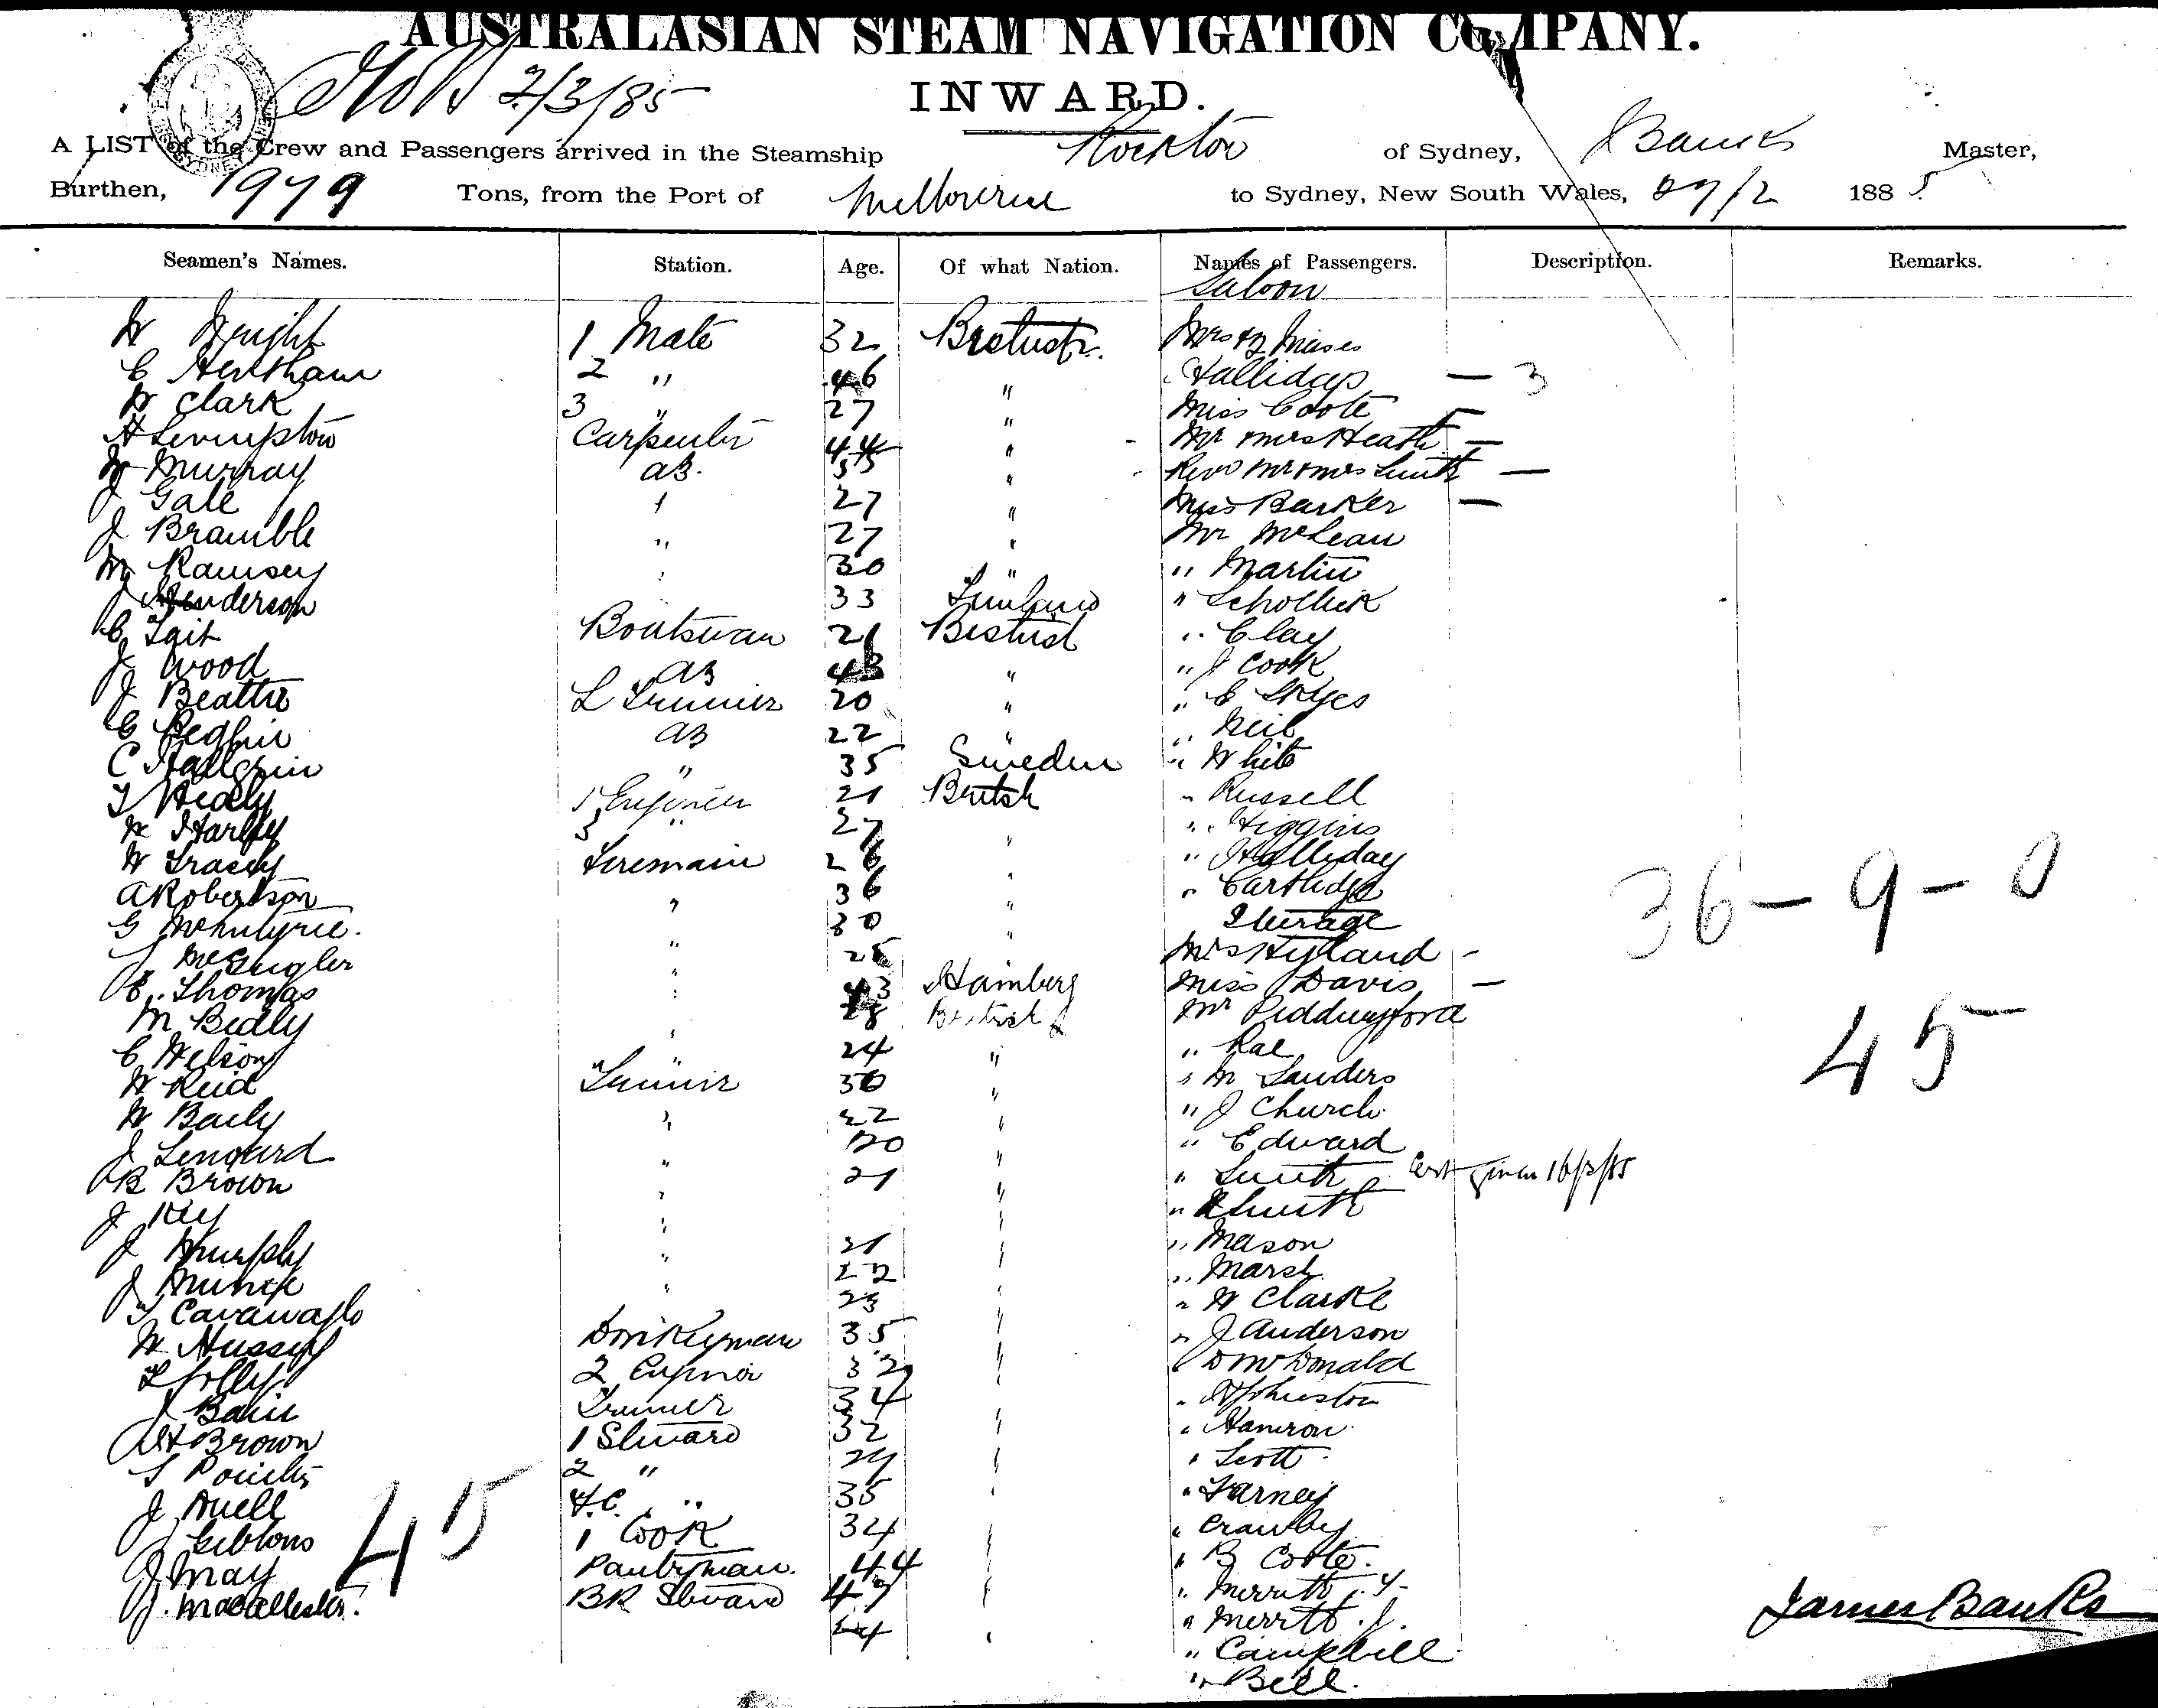 AUSTRALASIAN STEAM NAVIGATION COMPANY.
2/3/85
INWARD.
A LIST of the Crew and Passengers arrived in the Steamship Rockton of Sydney, J Banks Master,
Burthen, 1979 Tons, from the Port of Melbourne to Sydney, New South Wales, 27/2 1885
Seamen's Names. Station. Age. Of what Nation. Names of Passengers. Description. Remarks.
Saloon
W Wright 1 Mate 32 British Mrs
C Henshaw 2 " 46 " Hallidays — 3
W Clark 3 " 27 " Miss Coote —
A Livingston Carpenter 44 " Mr Mrs Heath —
W Murray AB. 55 " Revd Mr & Mrs Smith —
J Gale 27 " Miss Barker —
J Bramble " 27 " Mr McLean
W Ramsey 30 " " Martin
J Henderson 33 "
C Tait Boatswan 21 British " Clay
J Wood AB 43 " " J Cook
J Beattie L Trimmer 20 " " C Skyes
C AB 22 " " Neil
C Hallgrin " 35 Sweden " White
T Healy 1 Engineer 21 British " Russell
W Harley 3 " 27 " " Higgins
W Tracey Firemain 26 " " Halliday
A Robertson " 36 " " Cartledge
G McIntyre. " 30 " Steerage
J " 25 Mrs Hyland -
E. Thomas 43 Hamberg Miss Davis —
M Bedly 28 British Mr Piddingford
C Nelson " 24 " " Rae
W Reid Trimmer 30 " " M Sanders
W Baily " 22 " " J Church
J Lenard " 20 " " Edward
R Brown " 21 " " Smith Cert given 16/3/85
J Key " " Smith
J Murphy " 21 " " Mason
J " 22 " " Marsh
T " 23 " " W Clarke
W Hussey Donkeyman 35 " " J Anderson
T Jolly 2 Enginer 32 " D McDonald
J Bain Trimmer 34 " " Johnston
Brown 1 Steward 32 " " Hamron
S Pointer 2 " 29 " " Scott
J Duell F.C. " 35 " " Farney
J Gibbons 1 Cook 34 " " Crawley
J May Pantryman. 44 " " B Coote.
J. Macallester. BR Steward 47 " " Merritt
24 " " Merritt. J.
" Campbell
" Bell.
36 - 9 - 0
45
45
James Banks